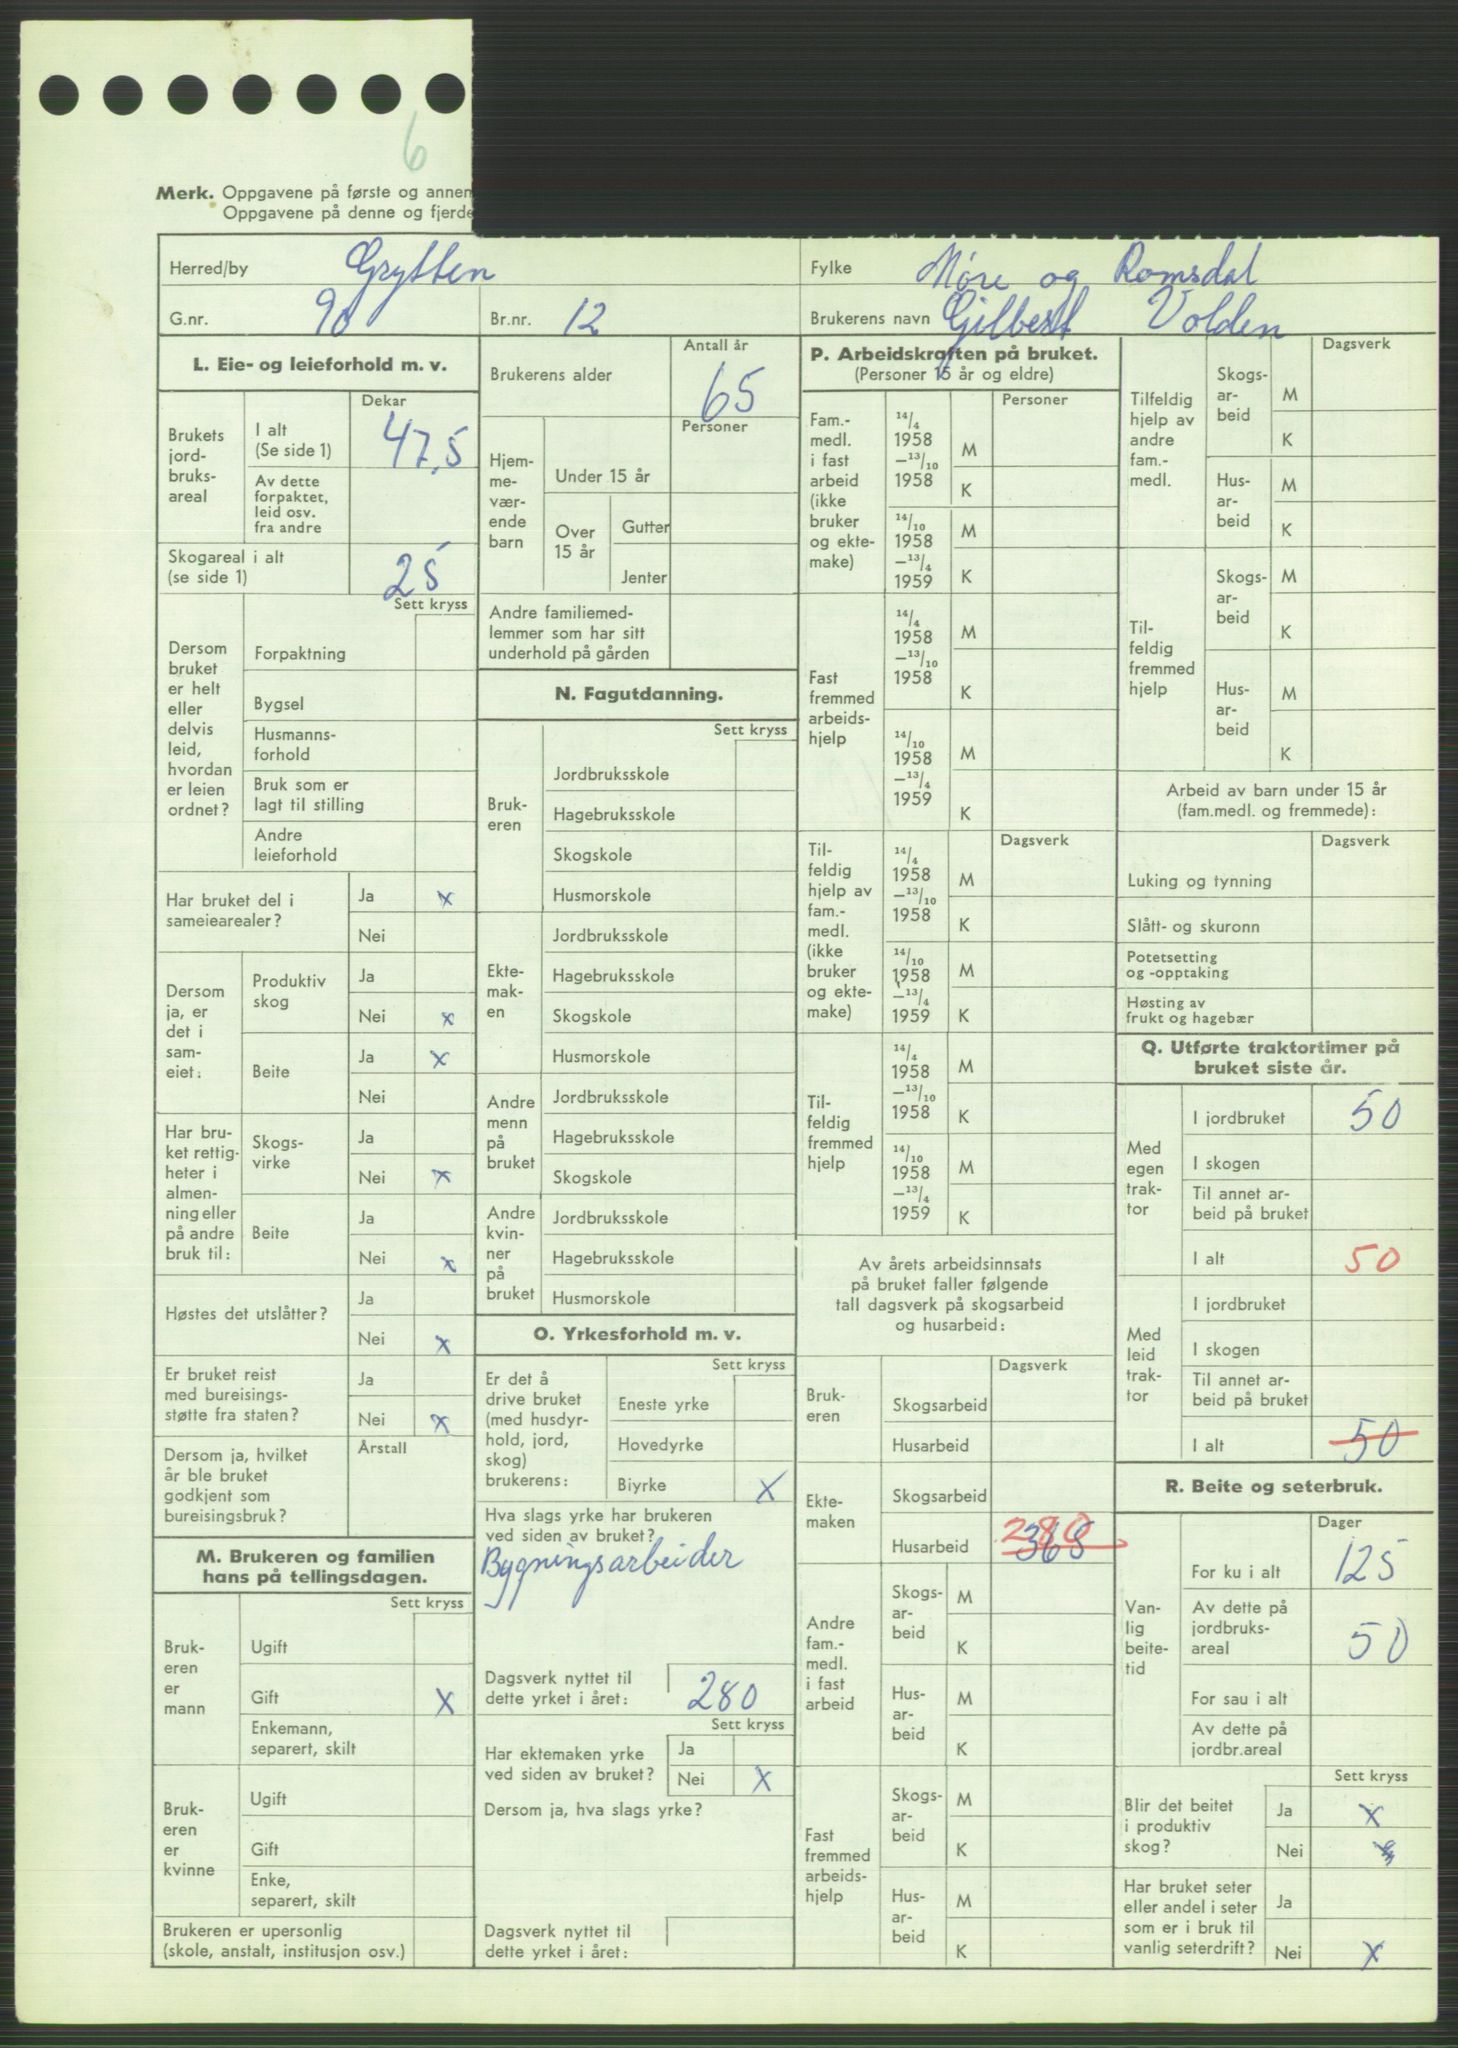 6
Merk. Oppgavene på første og annen
Oppgavene på denne og fjerde
Herred/by Grytten
Fylke Møre og Romsdal
G.nr. 90
Br.nr. 12
Brukerens navn Gilbert Volden
L. Eie- og leieforhold m. v.
Dekar
Brukets
jord-
bruks-
areal
I alt
(Se side 1)
47,5
Av dette
forpaktet,
leid osv.
fra andre
Skogareal i alt
(se side 1)
25
Sett kryss
Dersom
bruket
er helt
eller
delvis
leid,
hvordan
er leien
ordnet?
Forpaktning
Bygsel
Husmanns-
forhold
Bruk som er
lagt til stilling
Andre
leieforhold
Har bruket del i
sameiearealer?
Ja x
Nei
Dersom
ja, er
det i
sam-
eiet:
Produktiv
skog
Ja
Nei x
Beite
Ja x
Nei
Har bru-
ket rettig-
heter i
almen-
ning eller
på andre
bruk til:
Skogs-
virke
Ja
Nei x
Beite
Ja
Nei x
Høstes det utslåtter?
Ja
Nei x
Er bruket reist
med bureisings-
støtte fra staten?
Ja
Nei x
Dersom ja, hvilket
år ble bruket
godkjent som
bureisingsbruk?
Årstall
M. Brukeren og familien
hans på tellingsdagen.
Sett kryss
Bruk-
eren
er
mann
Ugift
Gift x
Enkemann,
separert, skilt
Bruk-
eren
er
kvinne
Ugift
Gift
Enke,
separert, skilt
Brukeren er upersonlig
(skole, anstalt, institusjon osv.)
Antall år
Brukerens alder 65
Personer
Hjem-
me-
vær-
ende
barn
Under 15 år
Over
15 år
Gutter
Jenter
Andre familiemed-
lemmer som har sitt
underhold på gården
N. Fagutdanning.
Sett kryss
Bruk-
eren
Jordbruksskole
Hagebruksskole
Skogskole
Husmorskole
Ekte-
mak-
en
Jordbruksskole
Hagebruksskole
Skogskole
Husmorskole
Andre
menn
på
bruket
Jordbruksskole
Hagebruksskole
Skogskole
Andre
kvin-
ner
på
bruket
Jordbruksskole
Hagebruksskole
Husmorskole
O. Yrkesforhold m. v.
Sett kryss
Er det å
drive bruket
(med husdyr-
hold, jord,
skog)
brukerens:
Eneste yrke
Hovedyrke
Biyrke x
Hva slags yrke har brukeren
ved siden av bruket?
Bygningsarbeider
Dagsverk nyttet til
dette yrket i året: 280
Sett kryss
Har ektemaken yrke
ved siden av bruket?
Ja
Nei x
Dersom ja, hva slags yrke?
Dagsverk nyttet til
dette yrket i året:
P. Arbeidskraften på bruket.
(Personer 15 år og eldre)
Personer
Fam.-
medl.
i fast
arbeid
(ikke
bruker
og ekte-
make)
14/4
1958
–13/10
1958
M
K
14/10
1958
–13/4
1959
M
K
Fast
fremmed
arbeids-
hjelp
14/4
1958
–13/10
1958
M
K
14/10
1958
–13/4
1959
M
K
Dagsverk
Til-
feldig
hjelp av
fam.-
medl.
(ikke
bruker
og ekte-
make)
14/4
1958
–13/10
1958
M
K
14/10
1958
–13/4
1959
M
K
Til-
feldig
fremmed
hjelp
14/4
1958
–13/10
1958
M
K
14/10
1958
–13/4
1959
M
K
Av årets arbeidsinnsats
på bruket faller følgende
tall dagsverk på skogsarbeid
og husarbeid:
Dagsverk
Bruk-
eren
Skogsarbeid
Husarbeid
Ekte-
maken
Skogsarbeid
Husarbeid 280 365
Andre
fam.-
medl.
i fast
arbeid
Skogs-
ar-
beid
M
K
Hus-
ar-
beid
M
K
Fast
fremmed
arbeids-
hjelp
Skogs-
ar-
beid
M
K
Hus-
ar-
beid
M
K
Dagsverk
Tilfeldig
hjelp av
andre
fam.-
medl.
Skogs-
ar-
beid
M
K
Hus-
ar-
beid
M
K
Til-
feldig
fremmed
hjelp
Skogs-
ar-
beid
M
K
Hus-
ar-
beid
M
K
Arbeid av barn under 15 år
(fam.medl. og fremmede):
Dagsverk
Luking og tynning
Slått- og skuronn
Potetsetting
og -opptaking
Høsting av
frukt og hagebær
Q. Utførte traktortimer på
bruket siste år.
Med
egen
trak-
tor
I jordbruket 50
I skogen
Til annet ar-
beid på bruket
I alt 50
Med
leid
trak-
tor
I jordbruket
I skogen
Til annet ar-
beid på bruket
I alt 50
R. Beite og seterbruk.
Dager
Van-
lig
beite-
tid
For ku i alt 125
Av dette på
jordbruks-
areal
50
For sau i alt
Av dette på
jordbr.areal
Sett kryss
Blir det beitet
i produktiv
skog?
Ja x
Nei
Har bruket seter
eller andel i seter
som er i bruk til
vanlig seterdrift?
Ja
Nei x